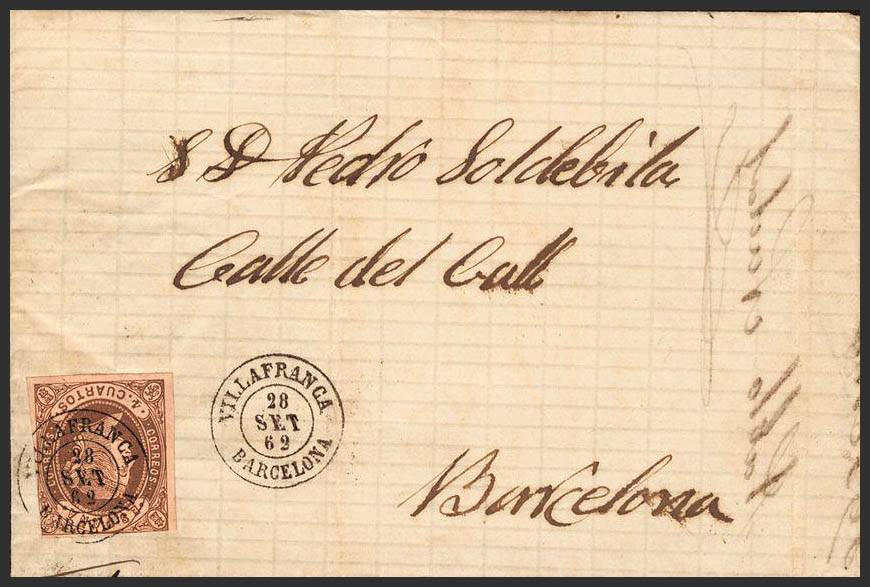 S D Pedro Soldebila
Calle del Call
Barcelona
VILLAFRANCA
28
SET
62
BARCELONA
4 CUARTOS
CORREOS
VILLAFRANCA
28
SET
62
BARCELONA